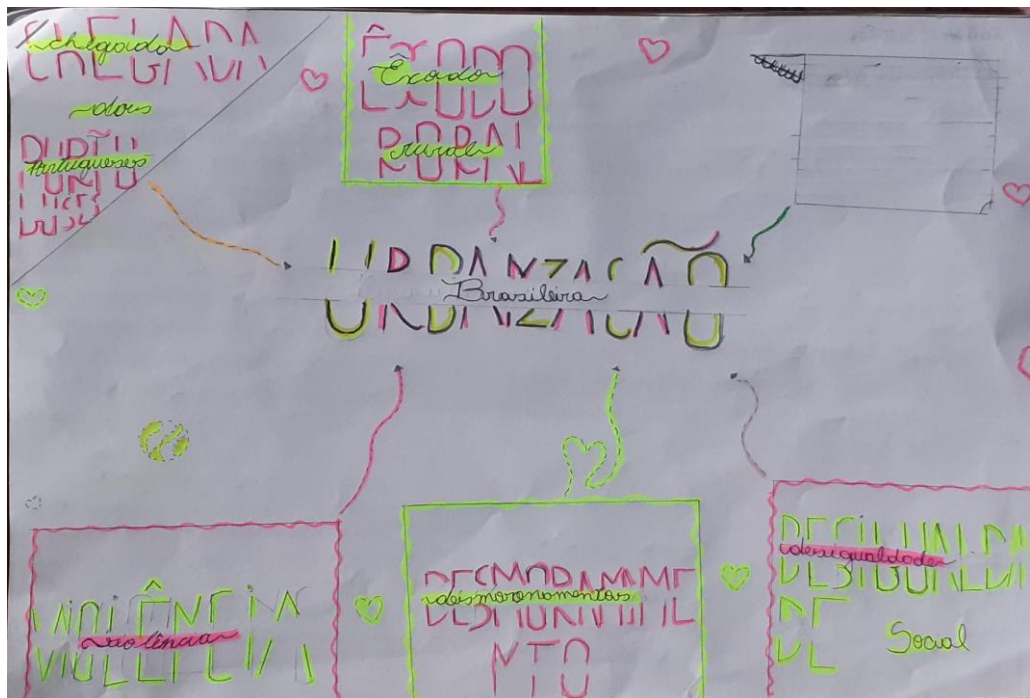 CHEGADA
chegada
dos
Portugueses
Êxodo
Êxodo
RURAL
rural
URBANZAÇÃO
Brasileira
VIOLÊNCIA
violência
desmoronamentos
DESIGUALDA
desigualdade
DE
Social